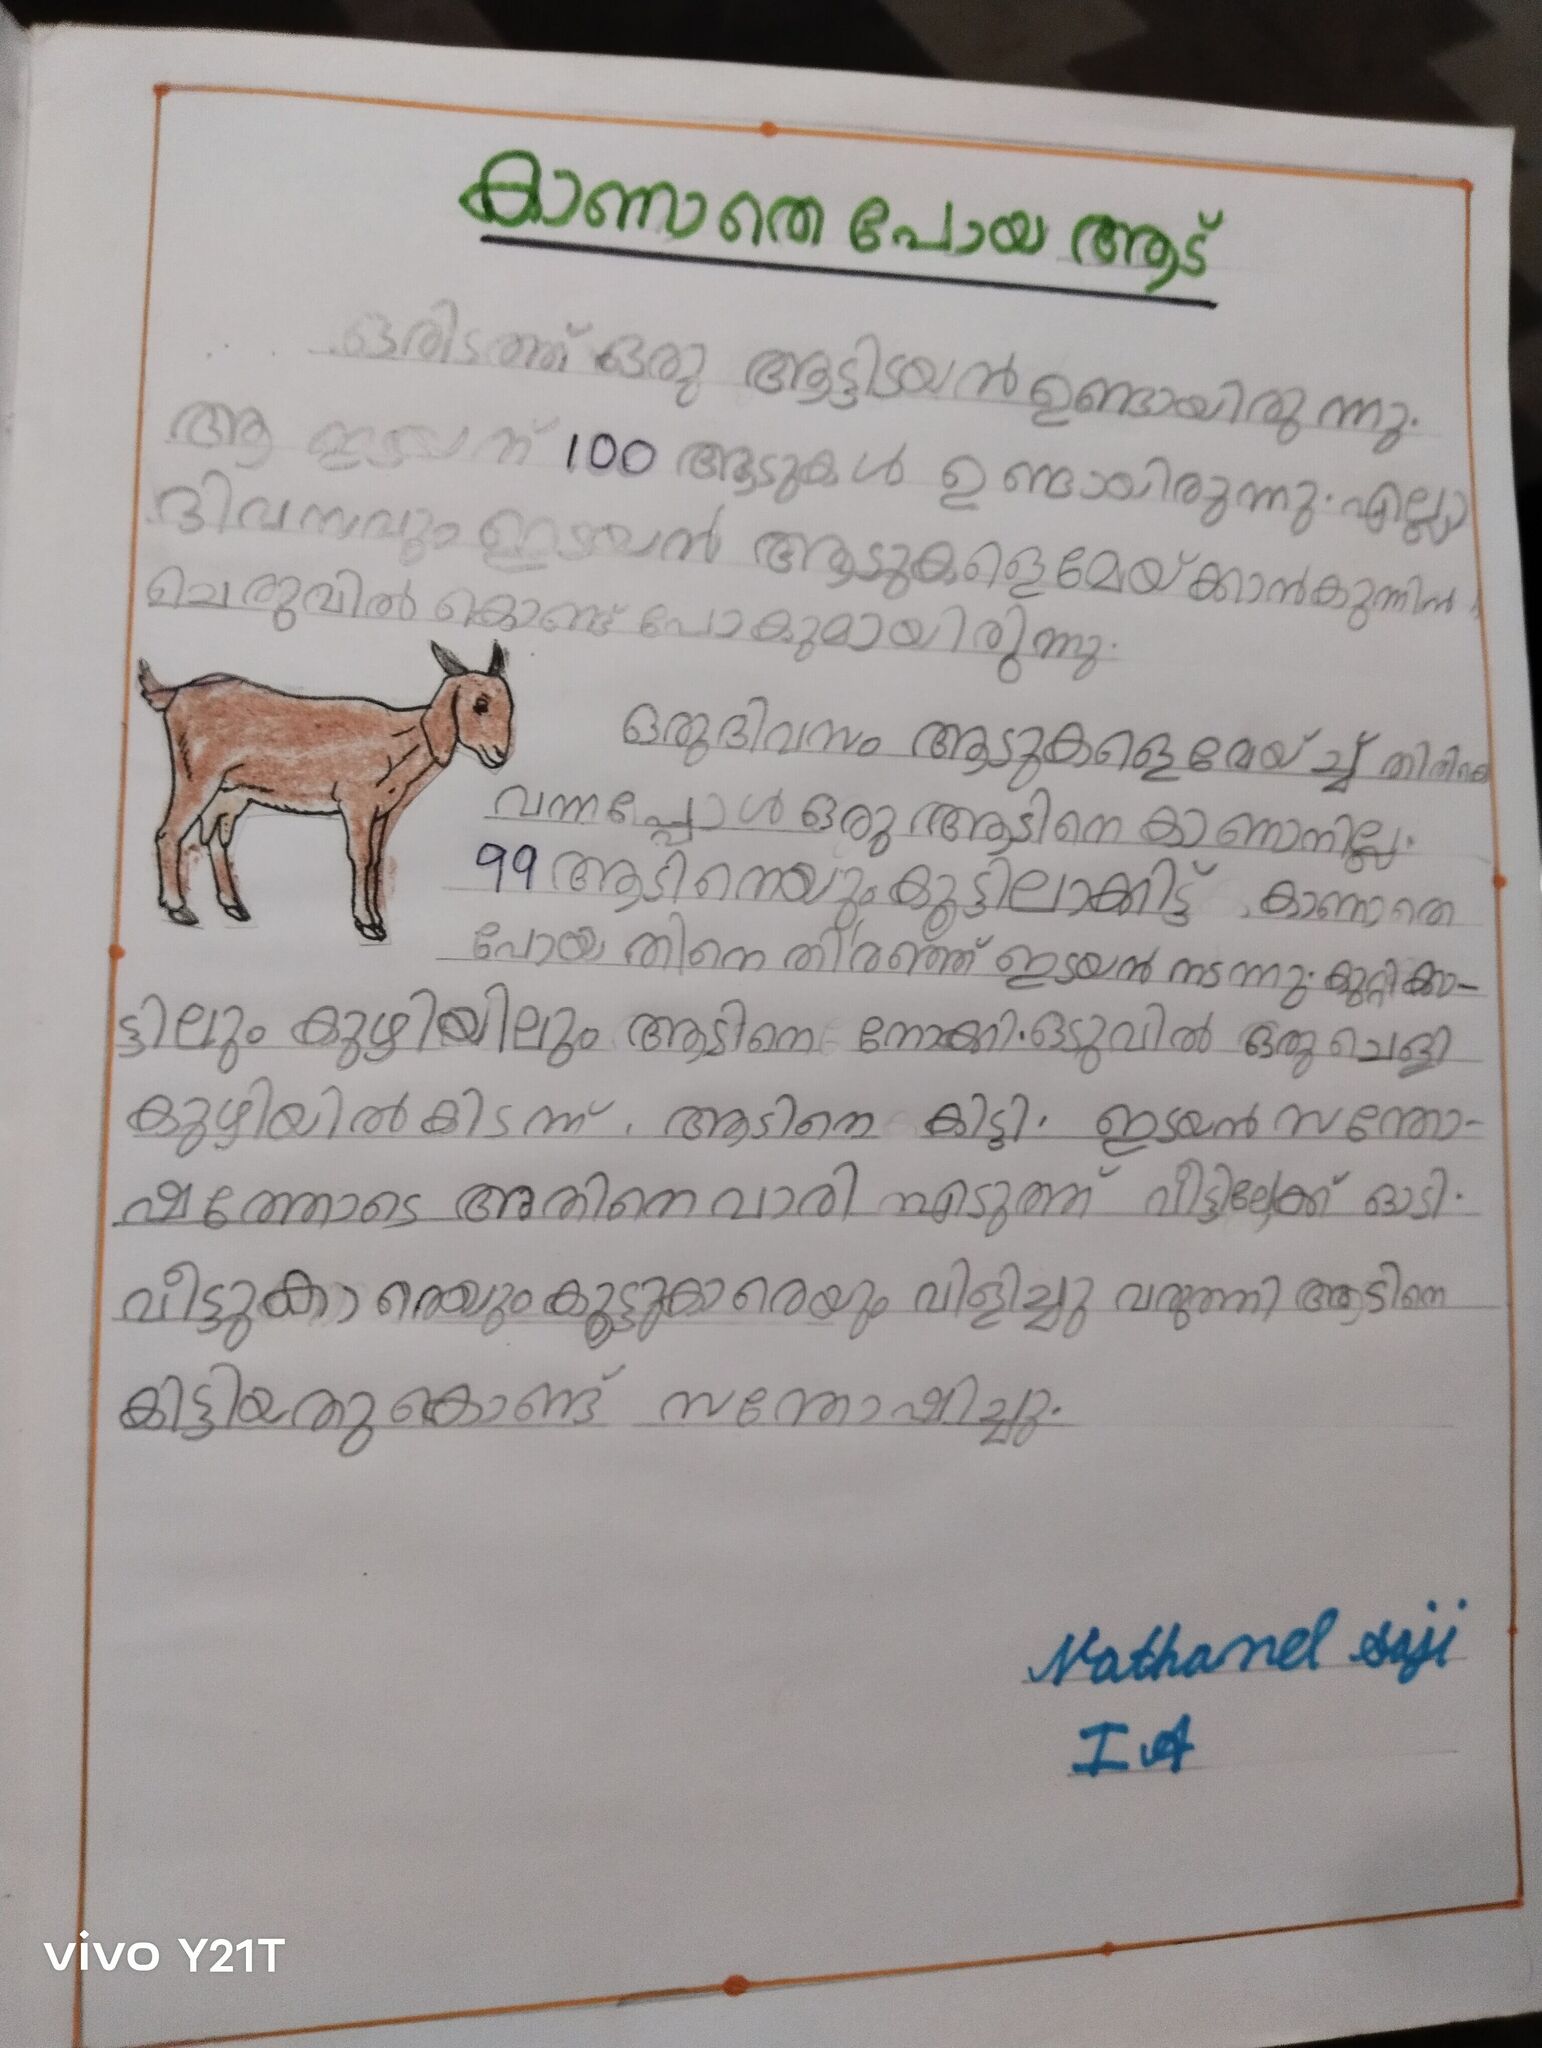 കാണാതെ പോയ ആട്
ഒരിടത്ത് ഒരു ആട്ടിടയൻ ഉണ്ടായിരുന്നു.
ആ ഇടയന് 100 ആടുകൾ ഉണ്ടായിരുന്നു. എല്ലാ
ദിവസവും ഇടയൻ ആടുകളെ മേയ്ക്കാൻ കുന്നിൻ
ചെരുവിൽ കൊണ്ട് പോകുമായിരുന്നു.
ഒരു ദിവസം ആടുകളെ മേയ്ച്ച് തിരികെ
വന്നപ്പോൾ ഒരു ആടിനെ കാണാനില്ല.
99 ആടിനെയും കൂട്ടിലാക്കിട്ട് കാണാതെ
പോയ തിനെ തിരഞ്ഞ് ഇടയൻ നടന്നു. കുറ്റിക്കാ-
ട്ടിലും കുഴിയിലും ആടിനെ നോക്കി. ഒടുവിൽ ഒരു ചെളി
കുഴിയിൽ കിടന്ന് ആടിനെ കിട്ടി. ഇടയൻ സന്തോ-
ഷത്തോടെ അതിനെ വാരി എടുത്ത് വീട്ടിലേക്ക് ഓടി.
വീട്ടുകാരെയും കൂട്ടുകാരെയും വിളിച്ചു വരുത്തി ആടിനെ
കിട്ടിയതു കൊണ്ട് സന്തോഷിച്ചു.
Nathanel Saji
I A
vivo Y21T